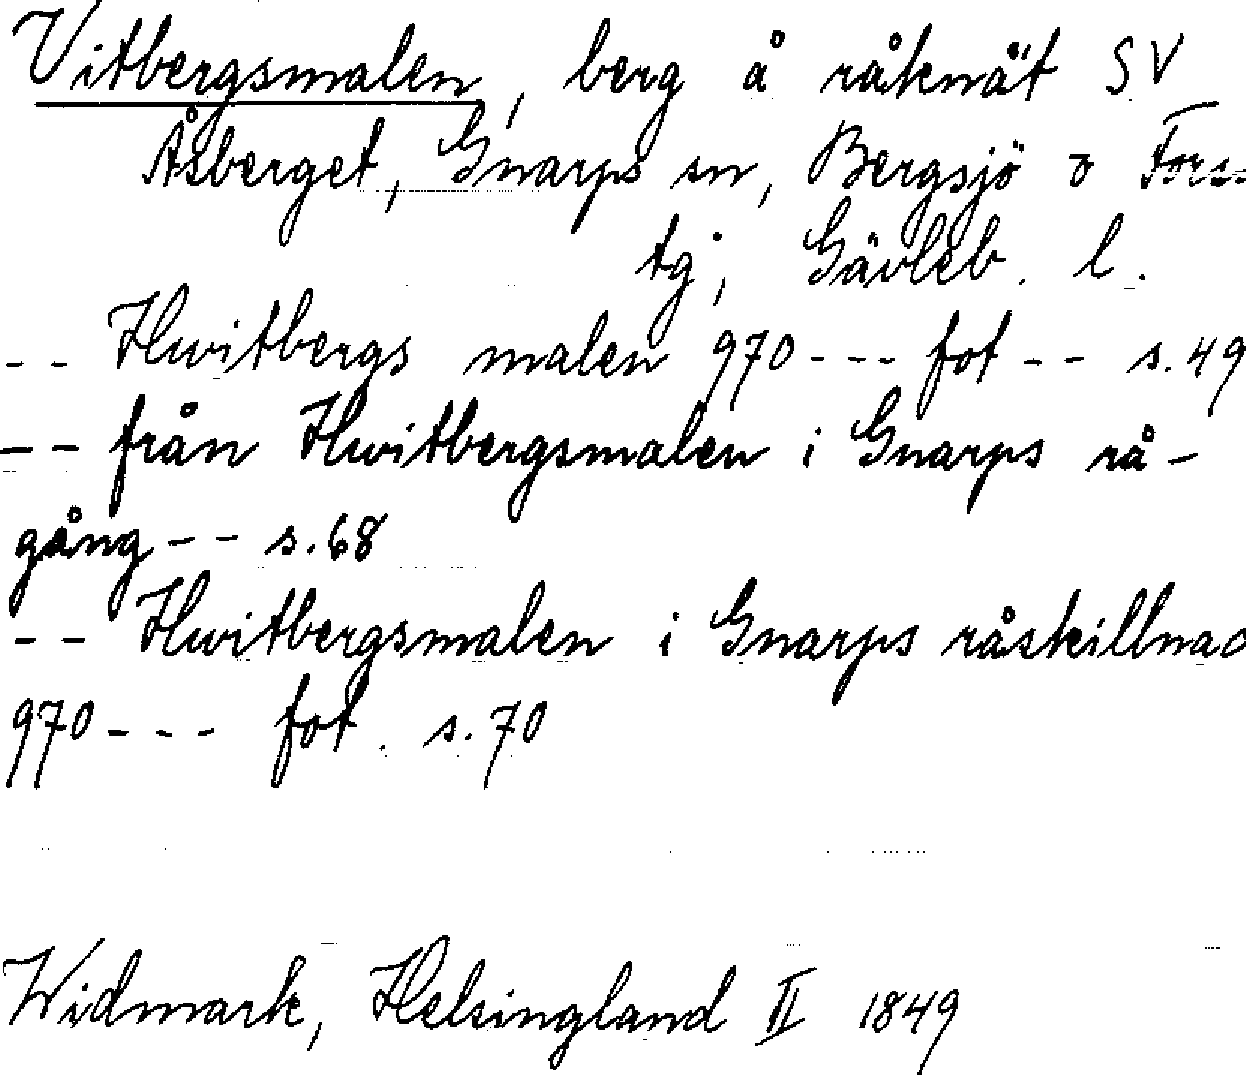 Vitbergsmalen, berg å råknät SV
Åsberget, Gnarps sn, Bergsjö o Forsa
tg, Gävleb. l.
-- Hwitbergs malen 970--- fot -- s. 49
-- från Hwitbergsmalen i Gnarps rå-
gång -- s. 68
-- Hwitbergsmalen i Gnarps råskillnad
970--- fot. s. 70
Widmark, Helsingland II 1849